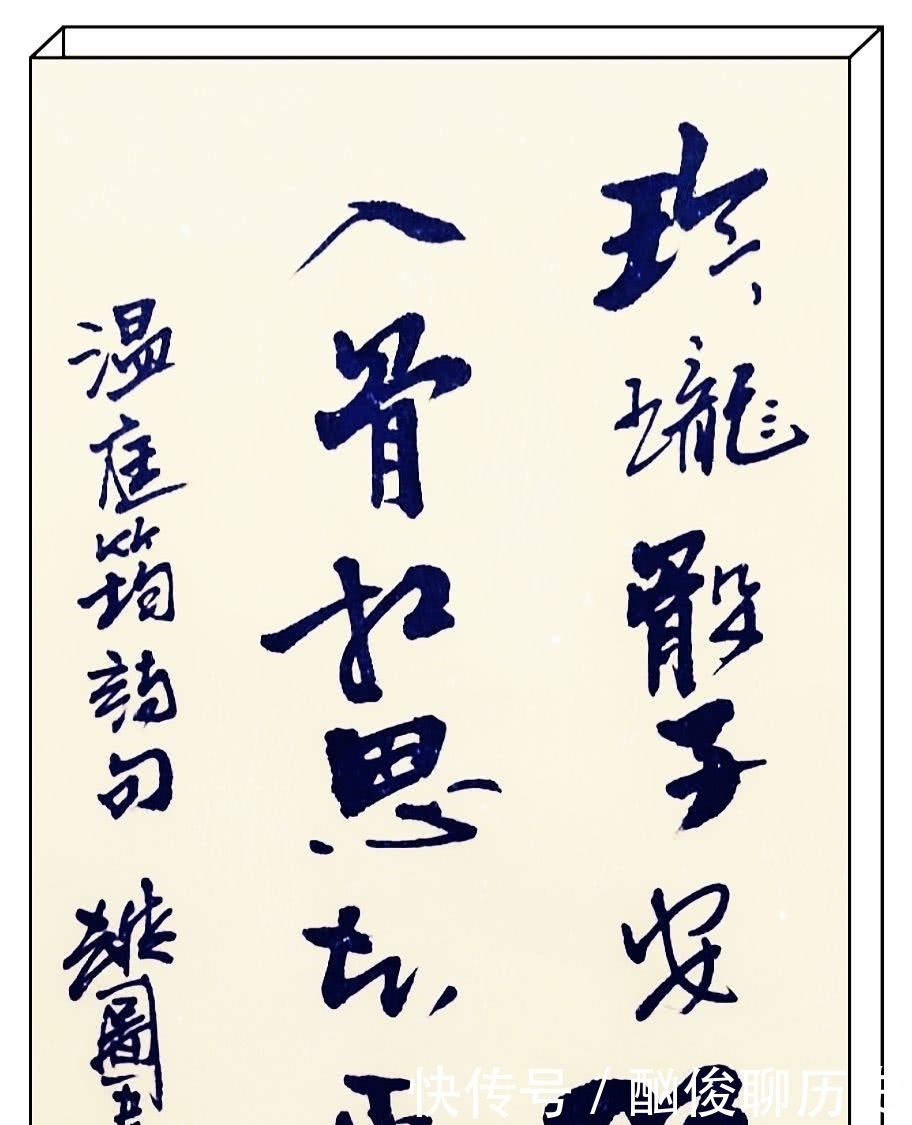 玲瓏骰子安
入骨相思知
温庭筠詩句
快传号 / 酗俊聊历史